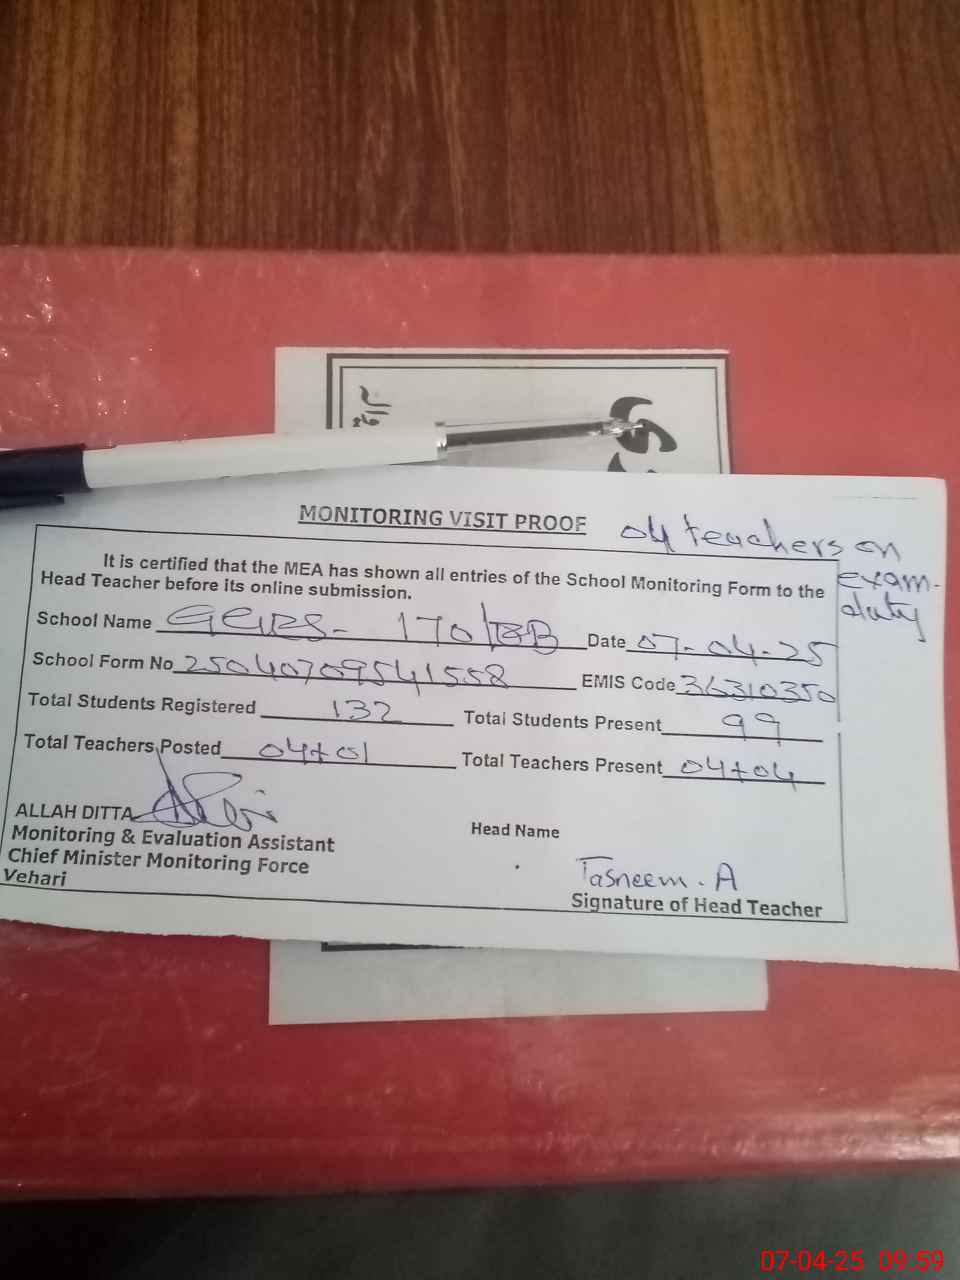 MONITORING VISIT PROOF
04 teachers on
exam-
duty
It is certified that the MEA has shown all entries of the School Monitoring Form to the
Head Teacher before its online submission.
School Name 170/BB Date 07-04-25
School Form No 25040709541558 EMIS Code 36310350
Total Students Registered 132 Total Students Present 99
Total Teachers Posted 04+01 Total Teachers Present 04+04
ALLAH DITTA
Monitoring & Evaluation Assistant
Chief Minister Monitoring Force
Vehari
Head Name
Tasneem. A
Signature of Head Teacher
07-04-25 09:59